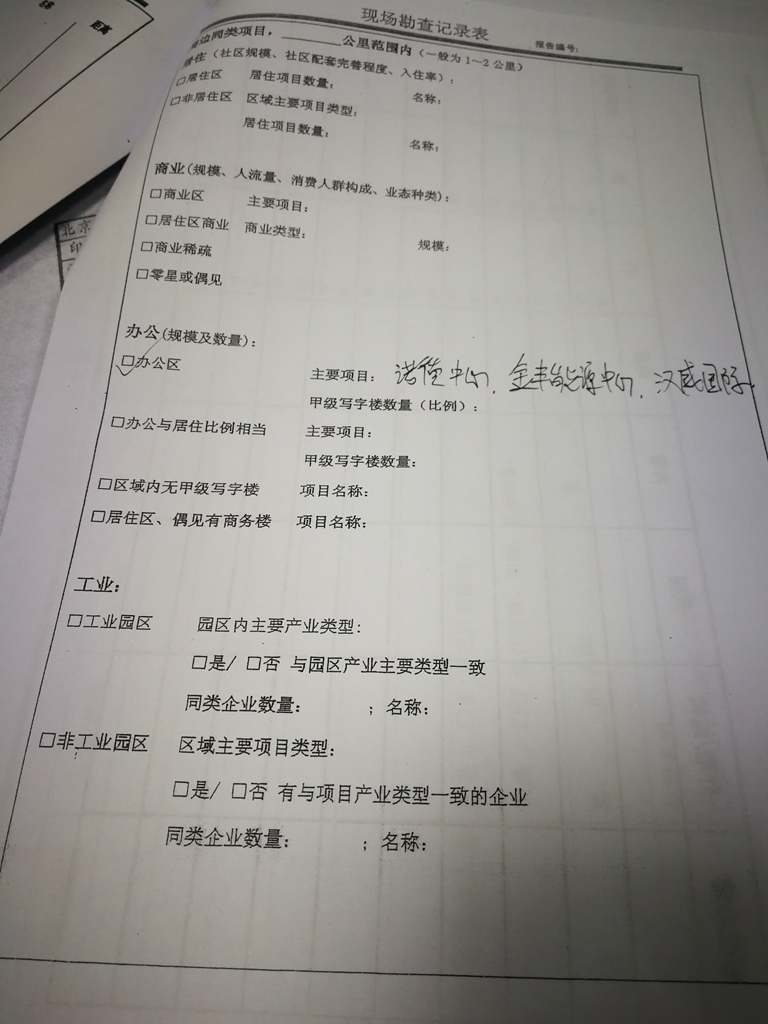 现场勘查记录表
报告编号:
边同类项目，______公里范围内（一般为1～2公里）
居住（社区规模、社区配套完善程度、入住率）:
□居住区 居住项目数量: 名称:
□非居住区 区域主要项目类型:
居住项目数量: 名称:
商业(规模、人流量、消费人群构成、业态种类):
□商业区 主要项目:
□居住区商业 商业类型: 规模:
□商业稀疏
□零星或偶见
办公(规模及数量):
□办公区 主要项目: 诺德中心、金丰能源中心、汉威国际
甲级写字楼数量（比例）:
□办公与居住比例相当 主要项目:
甲级写字楼数量:
□区域内无甲级写字楼 项目名称:
□居住区、偶见有商务楼 项目名称:
工业:
□工业园区 园区内主要产业类型:
□是/ □否 与园区产业主要类型一致
同类企业数量: ; 名称:
□非工业园区 区域主要项目类型:
□是/ □否 有与项目产业类型一致的企业
同类企业数量: ; 名称:
北京
印